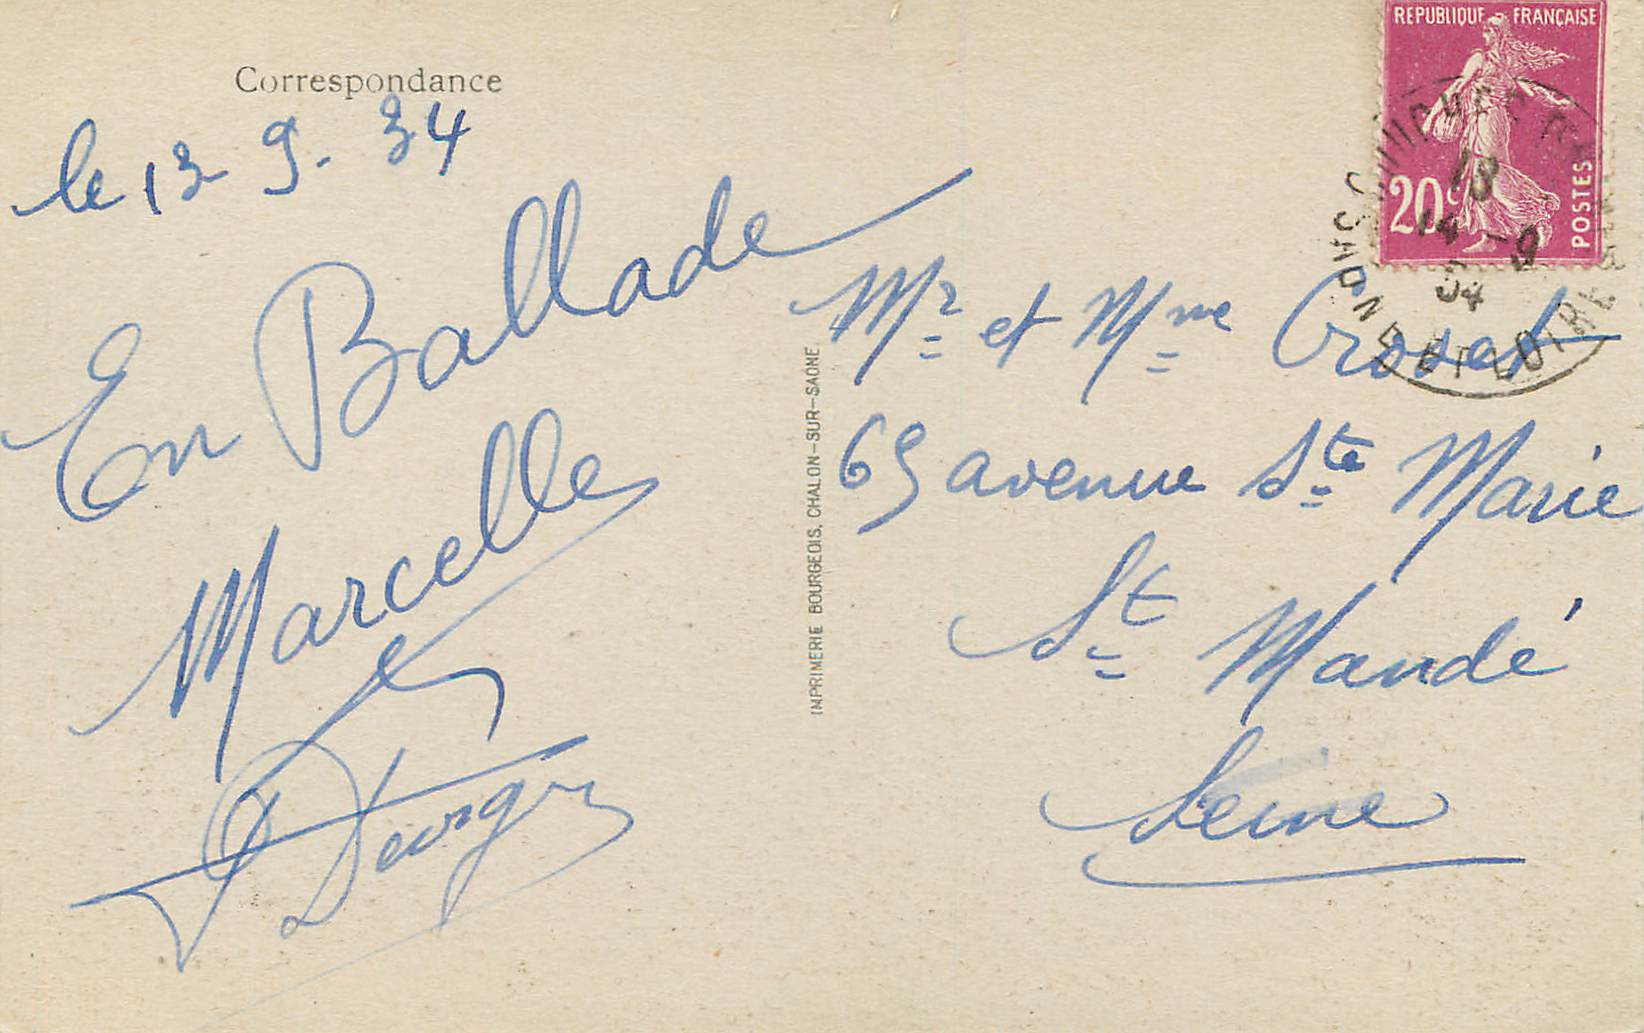 Correspondance
le 13 9. 34
En Ballade
Marcelle
IMPRIMERIE BOURGEOIS, CHALON-SUR-SAONE
REPUBLIQUE FRANÇAISE
20c
POSTES
13
14 - 9
34
SAONE ET LOIRE
Mr et Mme Croset
69 avenue Ste Marie
St Mandé
Seine